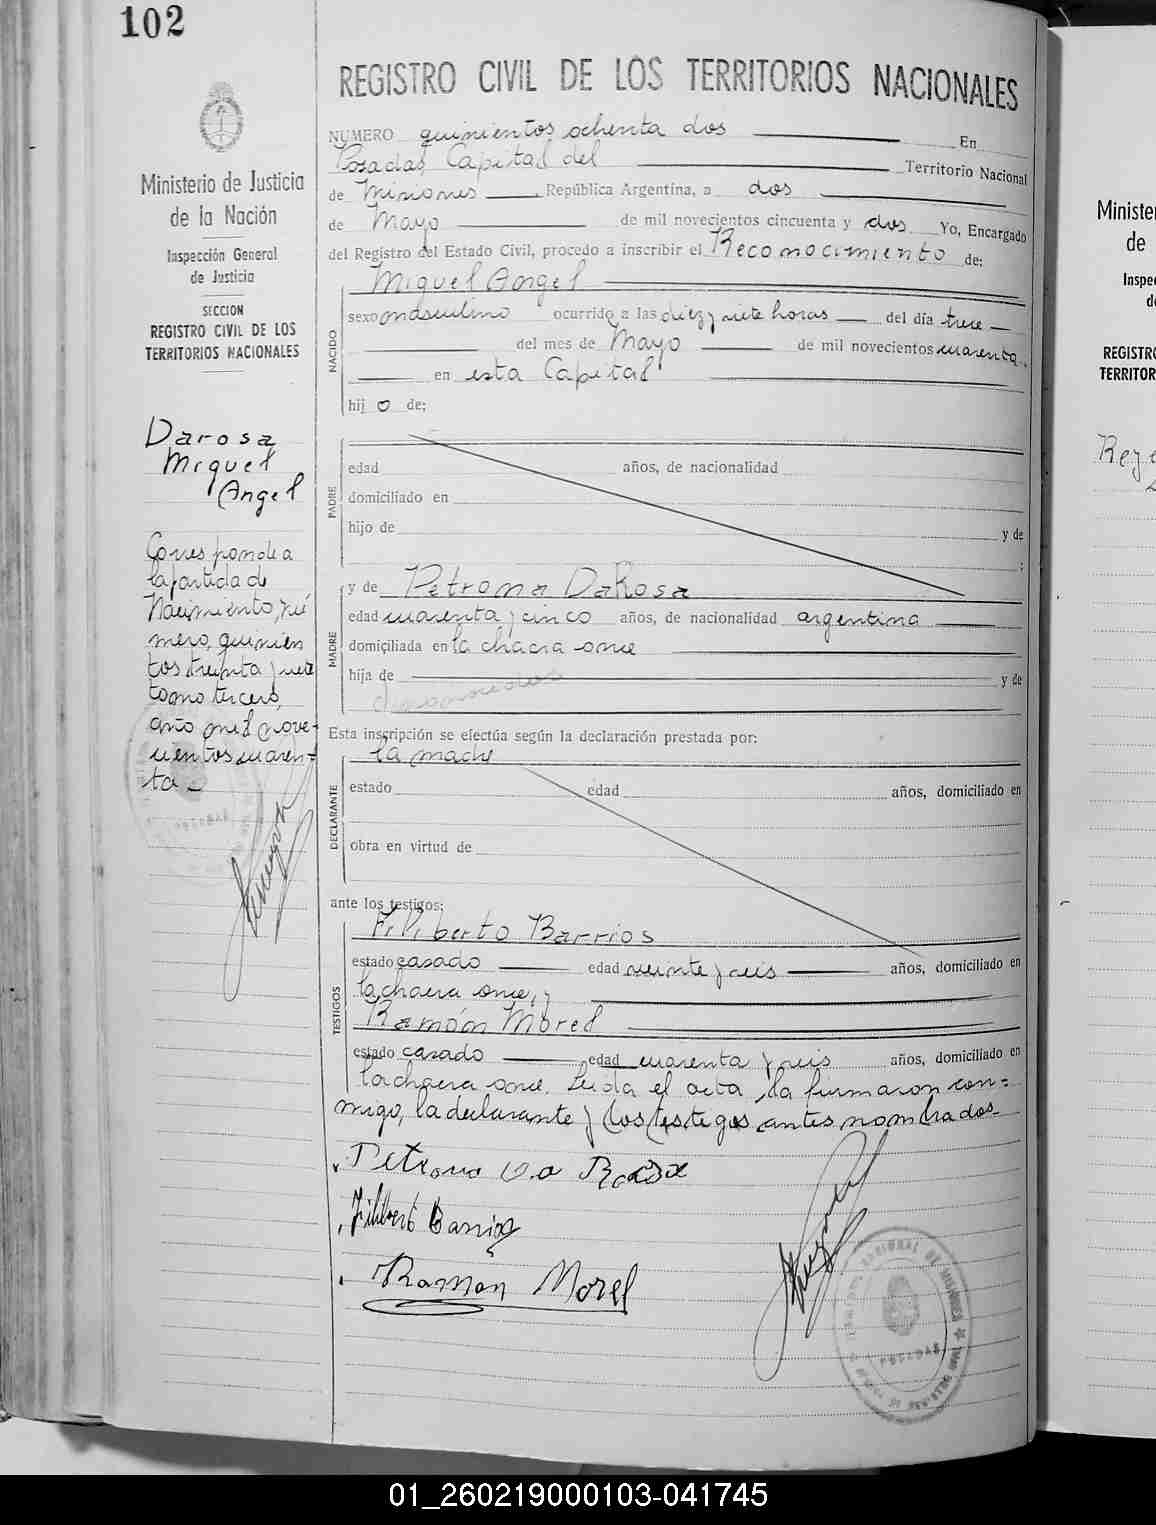 102
Ministerio de Justicia
de la Nación
Inspección General
de Justicia
SECCION
REGISTRO CIVIL DE LOS
TERRITORIOS NACIONALES
Darosa
Miguel
Angel
Corresponde a
la partida de
Nacimiento, nú
mero, quinien
tos treinta y siete
tomo tercero,
año mil nove-
cientos cuaren-
ta.-
REGISTRO CIVIL DE LOS TERRITORIOS NACIONALES
NUMERO quinientos ochenta dos En
Posadas, Capital del Territorio Nacional
de Misiones República Argentina, a dos
de Mayo de mil novecientos cincuenta y dos Yo, Encargado
del Registro del Estado Civil, procedo a inscribir el Reconocimiento de:
NACIDO
Miguel Angel
sexo masculino ocurrido a las diez y siete horas del día trece
del mes de Mayo de mil novecientos cuarenta
en esta Capital
hij o de:
PADRE
edad años, de nacionalidad
domiciliado en
hijo de y de
;
MADRE
y de Petrona DaRosa
edad cuarenta y cinco años, de nacionalidad argentina
domiciliada en la chacra once
hija de y de
Esta inscripción se efectúa según la declaración prestada por:
DECLARANTE
la madre
estado edad años, domiciliado en
obra en virtud de
ante los testigos:
TESTIGOS
Filiberto Barrios
estado casado edad veinte y seis años, domiciliado en
la chacra once, y
Ramón Morel
estado casado edad cuarenta y seis años, domiciliado en
la chacra once. Leida el acta, la firmaron con=
migo, la declarante y los testigos antes nombrados-
Petrona D.a Rosa
Filiberto Barrios
Ramón Morel
POSADAS
Ministe
de
Inspe
de
REGISTR
TERRITOR
01_260219000103-041745